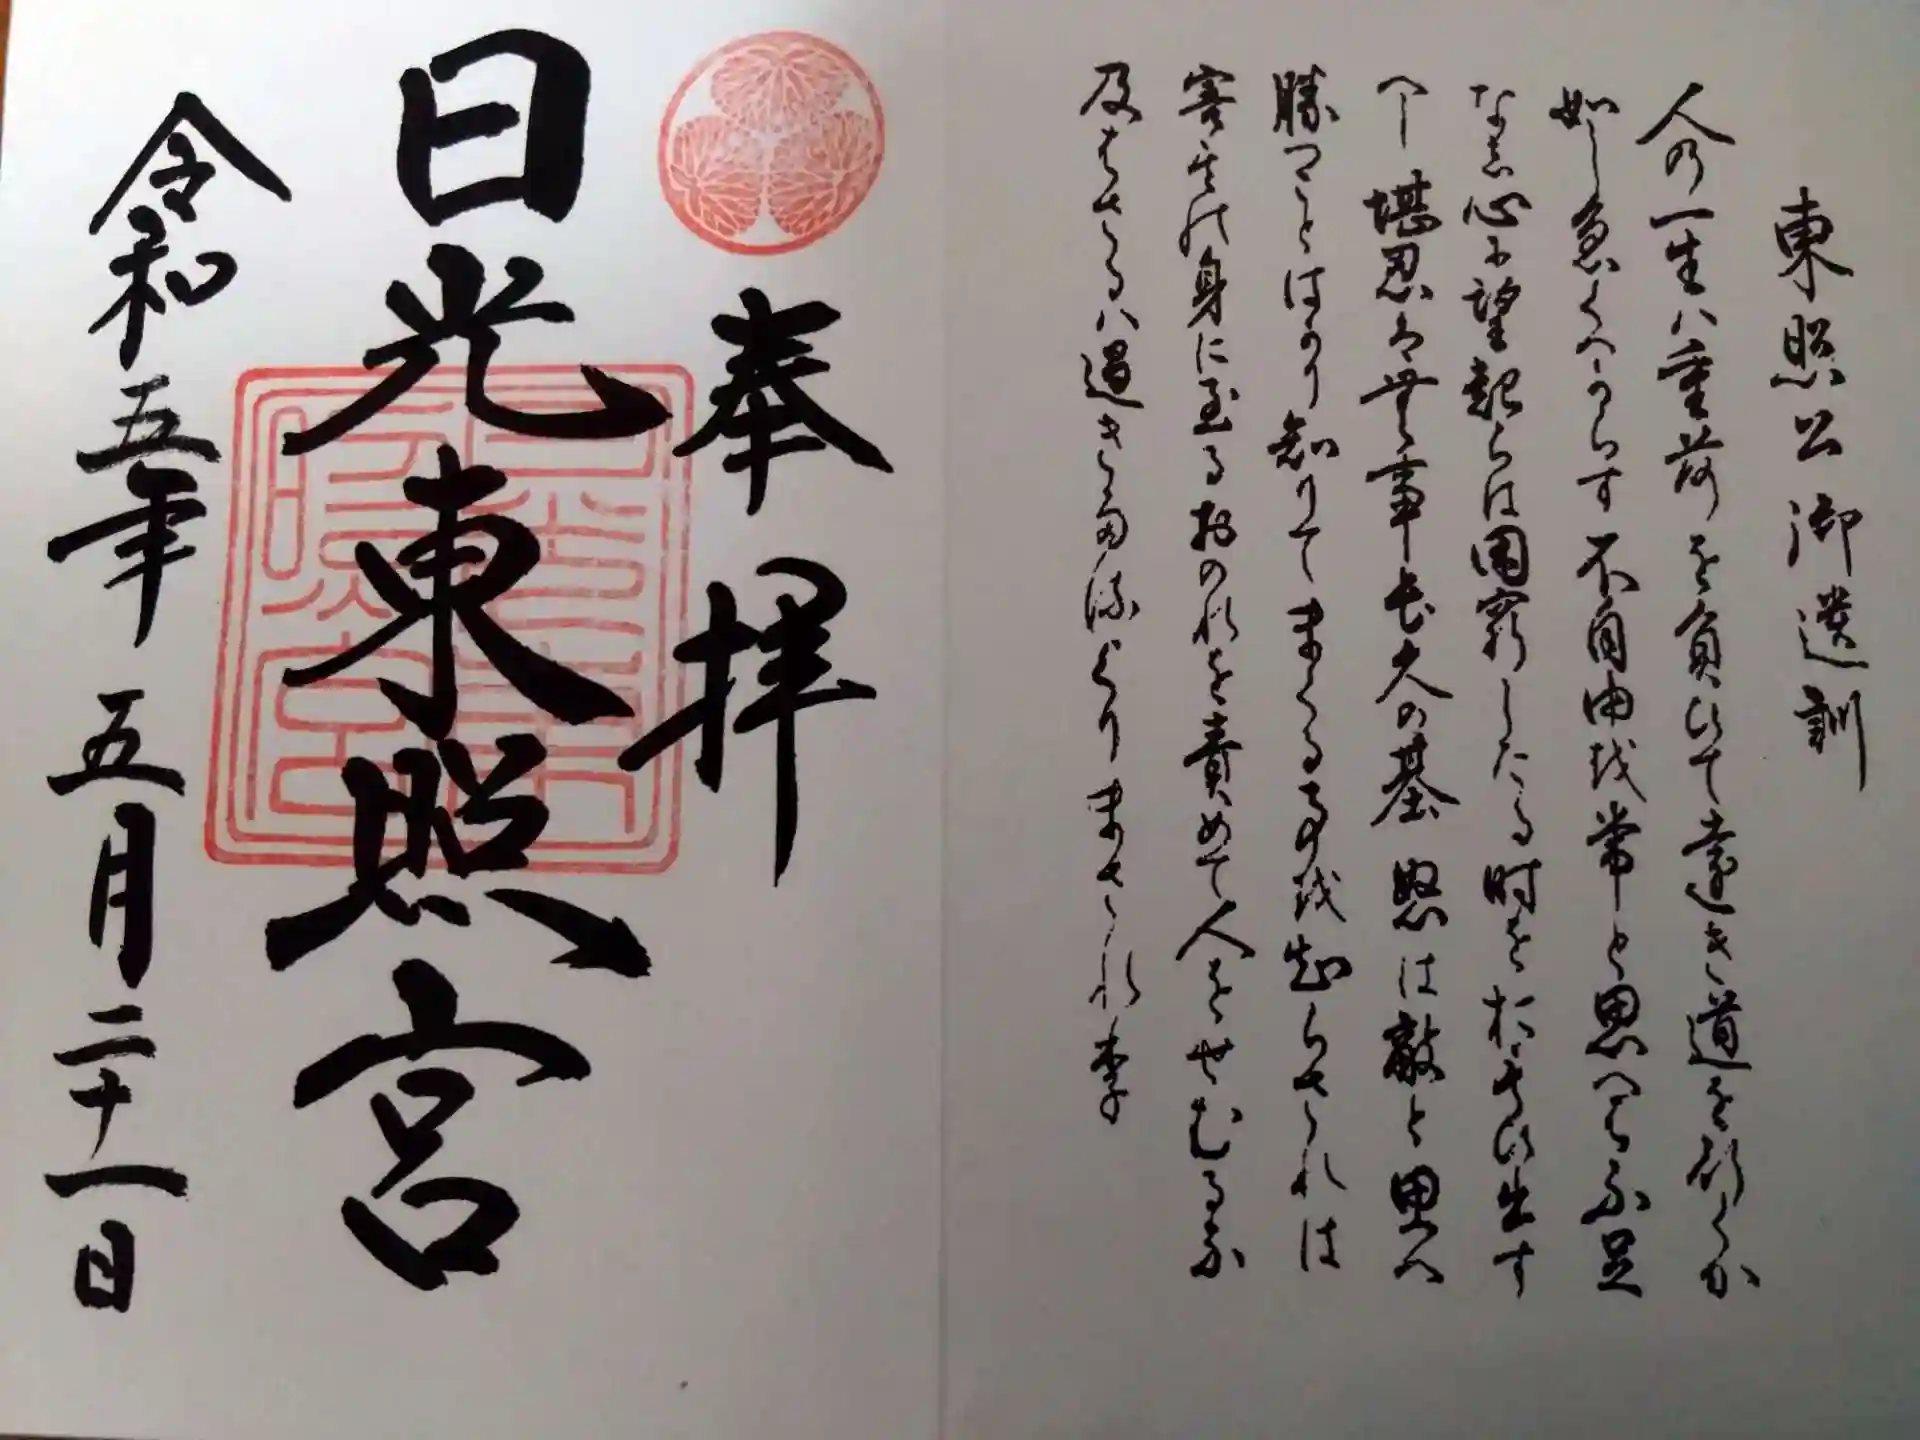 東照公御遺訓
人の一生ハ重荷を負ひて遠き道を行くか
如し急くへからす不自由を常と思へは不足
なし心に望起らは困窮したる時を於もひ出す
へし堪忍は無事長久の基怒は敵と思へ
勝つことはかり知りてまくる事を知らされは
害其の身に至るおのれを責めて人をせむるな
及はさるハ過きたるよりまされり
奉拝
日光東照宮
令和五年五月二十一日